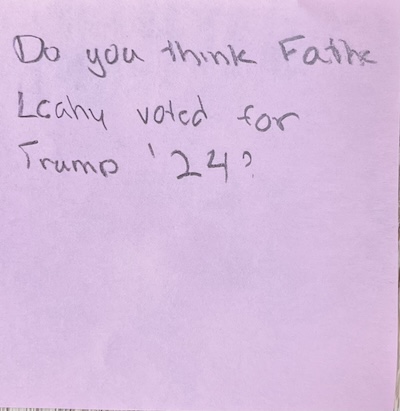 Do you think Fathe
Leahy voted for
Trump '24?